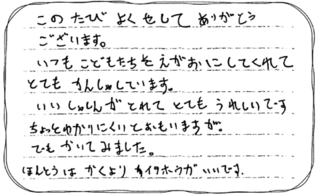 このたび よくをして ありがとう
ございます。
いつも こどもたちを えがおにしてくれて
とても かんしゃしています。
いい しゃしんが とれて とても うれしいです
ちょっとわかりにくいとおもいますが。
でも かいてみました。
ほんとうは かくより カイタホウガ いいです。